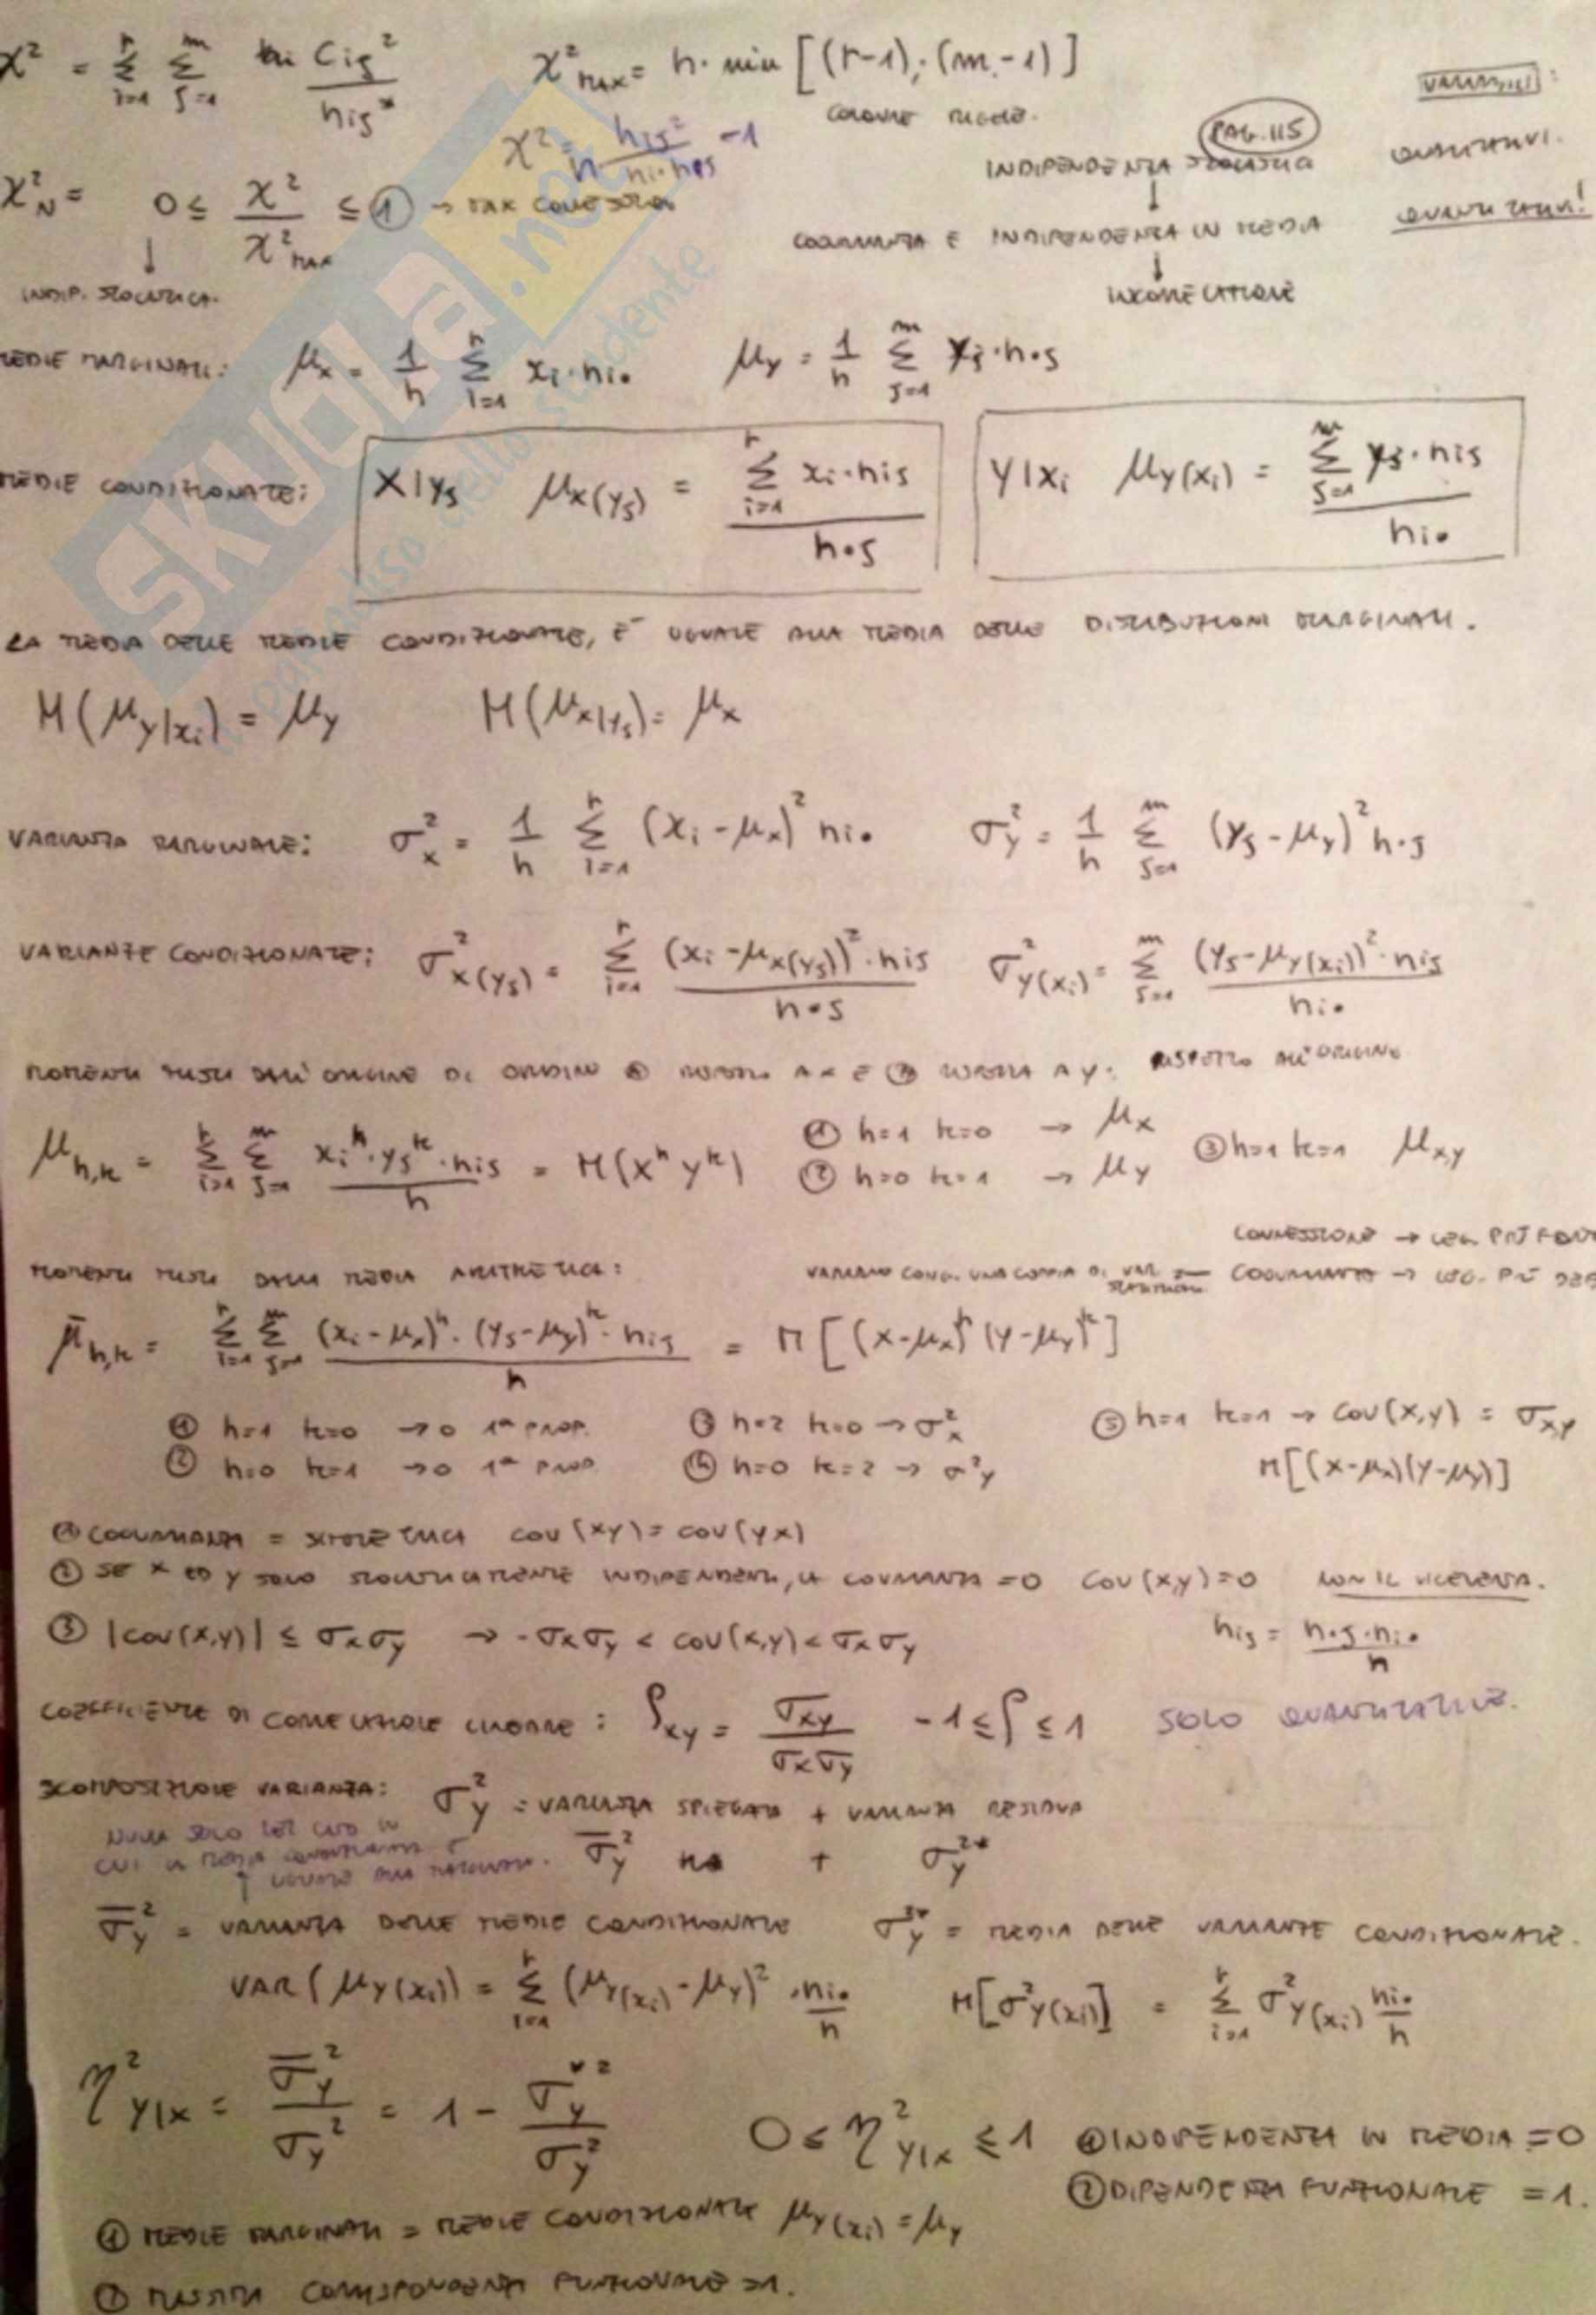 χ² = Σ(i=1→r) Σ(j=1→m) Cij² / nij*    χ²MAX = n · min [(r-1); (m-1)]
COLONNE RIGHE.
VARIABILI:
PAG. 115
χ² = n nij² / ni·n•j -1
INDIPENDENZA STOCASTICA
QUALITATIVI.
χ²N = 0 ≤ χ² / χ²MAX ≤ 1 → MAX CONNESSIONE
↓
QUANTITATIVI!
COVARIANZA E INDIPENDENZA IN MEDIA
↓
INDIP. STOCASTICA.
INCORRELAZIONE
MEDIE MARGINALI: μx = 1/n Σ(i=1→r) xi·ni•    μy = 1/n Σ(j=1→m) yj·n•j
MEDIE CONDIZIONATE: X|yj  μx(yj) = Σ(i=1→r) xi·nij / n•j    Y|xi  μy(xi) = Σ(j=1→m) yj·nij / ni•
LA MEDIA DELLE MEDIE CONDIZIONATE, È UGUALE ALLA MEDIA DELLE DISTRIBUZIONI MARGINALI.
M(μy|xi) = μy    M(μx|yj) = μx
VARIANZA MARGINALE: σ²x = 1/n Σ(i=1→r) (xi - μx)² ni•    σ²y = 1/n Σ(j=1→m) (yj - μy)² n•j
VARIANZE CONDIZIONATE: σ²x(yj) = Σ(i=1→r) (xi - μx(yj))²·nij / n•j    σ²y(xi) = Σ(j=1→m) (yj - μy(xi))²·nij / ni•
MOMENTI MISTI DALL'ORIGINE DI ORDINE h RISPETTO A X E k RISPETTO A Y: RISPETTO ALL'ORIGINE
μh,k = Σ(i=1→r) Σ(j=1→m) xi^h·yj^k·nij / n = M(X^h Y^k)    ① h=1 k=0 → μx    ③ h=1 k=1 μx,y
② h=0 k=1 → μy
CONNESSIONE → LEG. PIÙ FORTE
MOMENTI MISTI DALLA MEDIA ARITMETICA:    VARIANO CONG. UNA COPPIA DI VAR. STATISTICHE COVARIANZA → LEG. PIÙ DEB
μ̄h,k = Σ(i=1→r) Σ(j=1→m) (xi - μx)^h · (yj - μy)^k · nij / n = M[(X-μx)^h (Y-μy)^k]
① h=1 k=0 → 0 1ª PROP.    ③ h=2 k=0 → σ²x    ⑤ h=1 k=1 → COV(X,Y) = σxy
② h=0 k=1 → 0 1ª PROP.    ④ h=0 k=2 → σ²y    M[(X-μx)(Y-μy)]
① COVARIANZA = SIMMETRICA COV(XY) = COV(YX)
② SE X ED Y SONO STOCASTICAMENTE INDIPENDENTI, LA COVARIANZA = 0 COV(X,Y) = 0 NON IL VICEVERSA.
③ |COV(X,Y)| ≤ σxσy → -σxσy < COV(X,Y) < σxσy    nij = n•j·ni• / n
COEFFICIENTE DI CORRELAZIONE LINEARE: ρxy = σxy / σxσy    -1 ≤ ρ ≤ 1    SOLO QUANTITATIVE.
SCOMPOSIZIONE VARIANZA: σ²y = VARIANZA SPIEGATA + VARIANZA RESIDUA
NULLA SOLO NEL CASO IN
CUI LA MEDIA CONDIZIONATA È
UGUALE ALLA MARGINALE.    σ̄²y + σ²*y
σ̄²y = VARIANZA DELLE MEDIE CONDIZIONATE    σ²*y = MEDIA DELLE VARIANZE CONDIZIONATE.
VAR(μy(xi)) = Σ(i=1→r) (μy(xi) - μy)² · ni• / n    M[σ²y(xi)] = Σ(i=1→r) σ²y(xi) ni• / n
η²y|x = σ̄²y / σ²y = 1 - σ*²y / σ²y    0 ≤ η²y|x ≤ 1    ① INDIPENDENZA IN MEDIA = 0
② DIPENDENZA FUNZIONALE = 1.
① MEDIE MARGINALI = MEDIE CONDIZIONATE μy(xi) = μy
② MASSIMA CORRISPONDENZA FUNZIONALE = 1.
SKUOLA.net